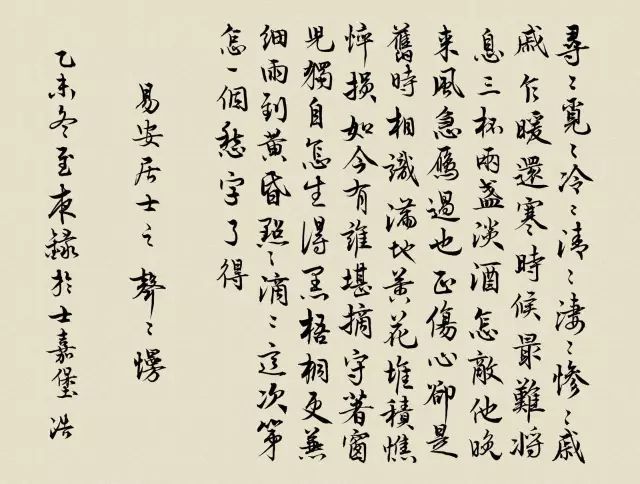 尋〻覓〻冷〻清〻淒〻慘〻戚
戚乍暖還寒時候最難將
息三杯兩盞淡酒怎敵他晚
来風急雁過也正傷心卻是
舊時相識滿地黃花堆積憔
悴損如今有誰堪摘守著窗
兒獨自怎生得黑梧桐更兼
細雨到黃昏點〻滴〻這次第
怎一個愁字了得
易安居士之聲〻慢
乙未冬至夜錄於士嘉堡浩